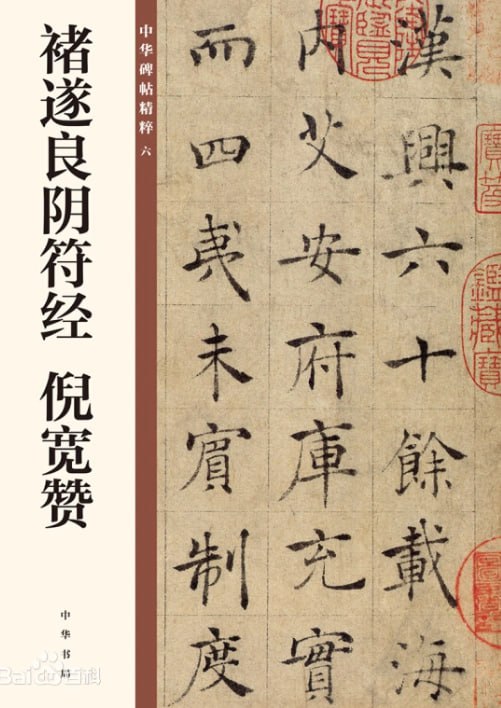 褚遂良阴符经 倪宽赞
中华碑帖精粹 六
漢興六十餘載海
内艾安府庫充實
而四夷未賓制度
中华书局
Bai百科